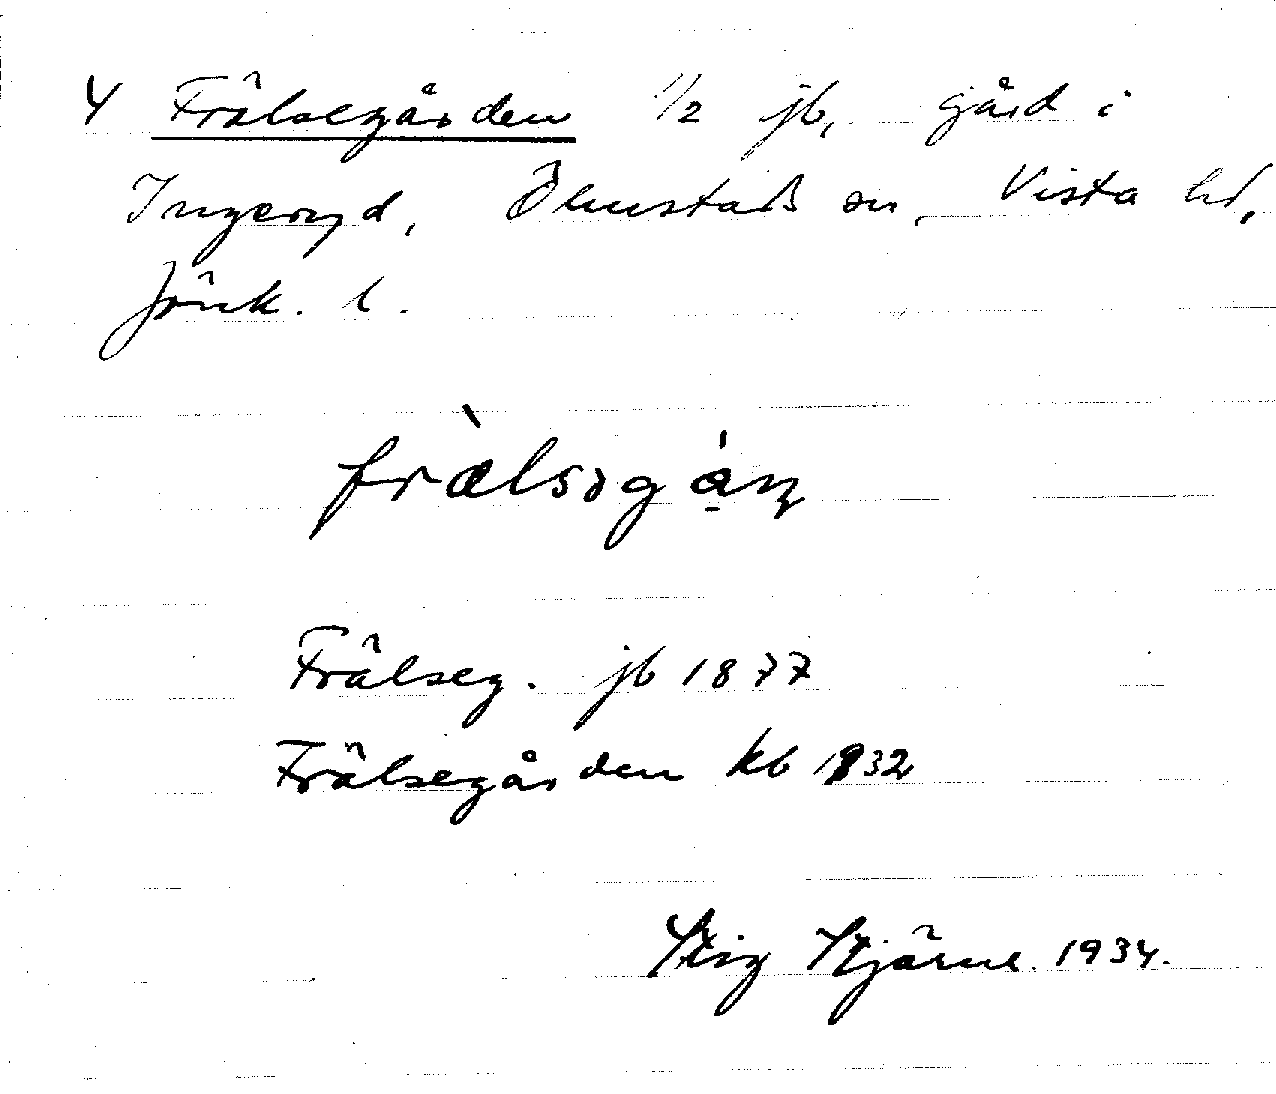 4 Frälsegården 1/2 jb, gård i
Ingeryd, Ölmstads sn, Vista hd,
Jönk. l.
frælsəgáṇ
Frälseg. jb 1877
Frälsegården kb 1932
Stig Stjärne. 1934.